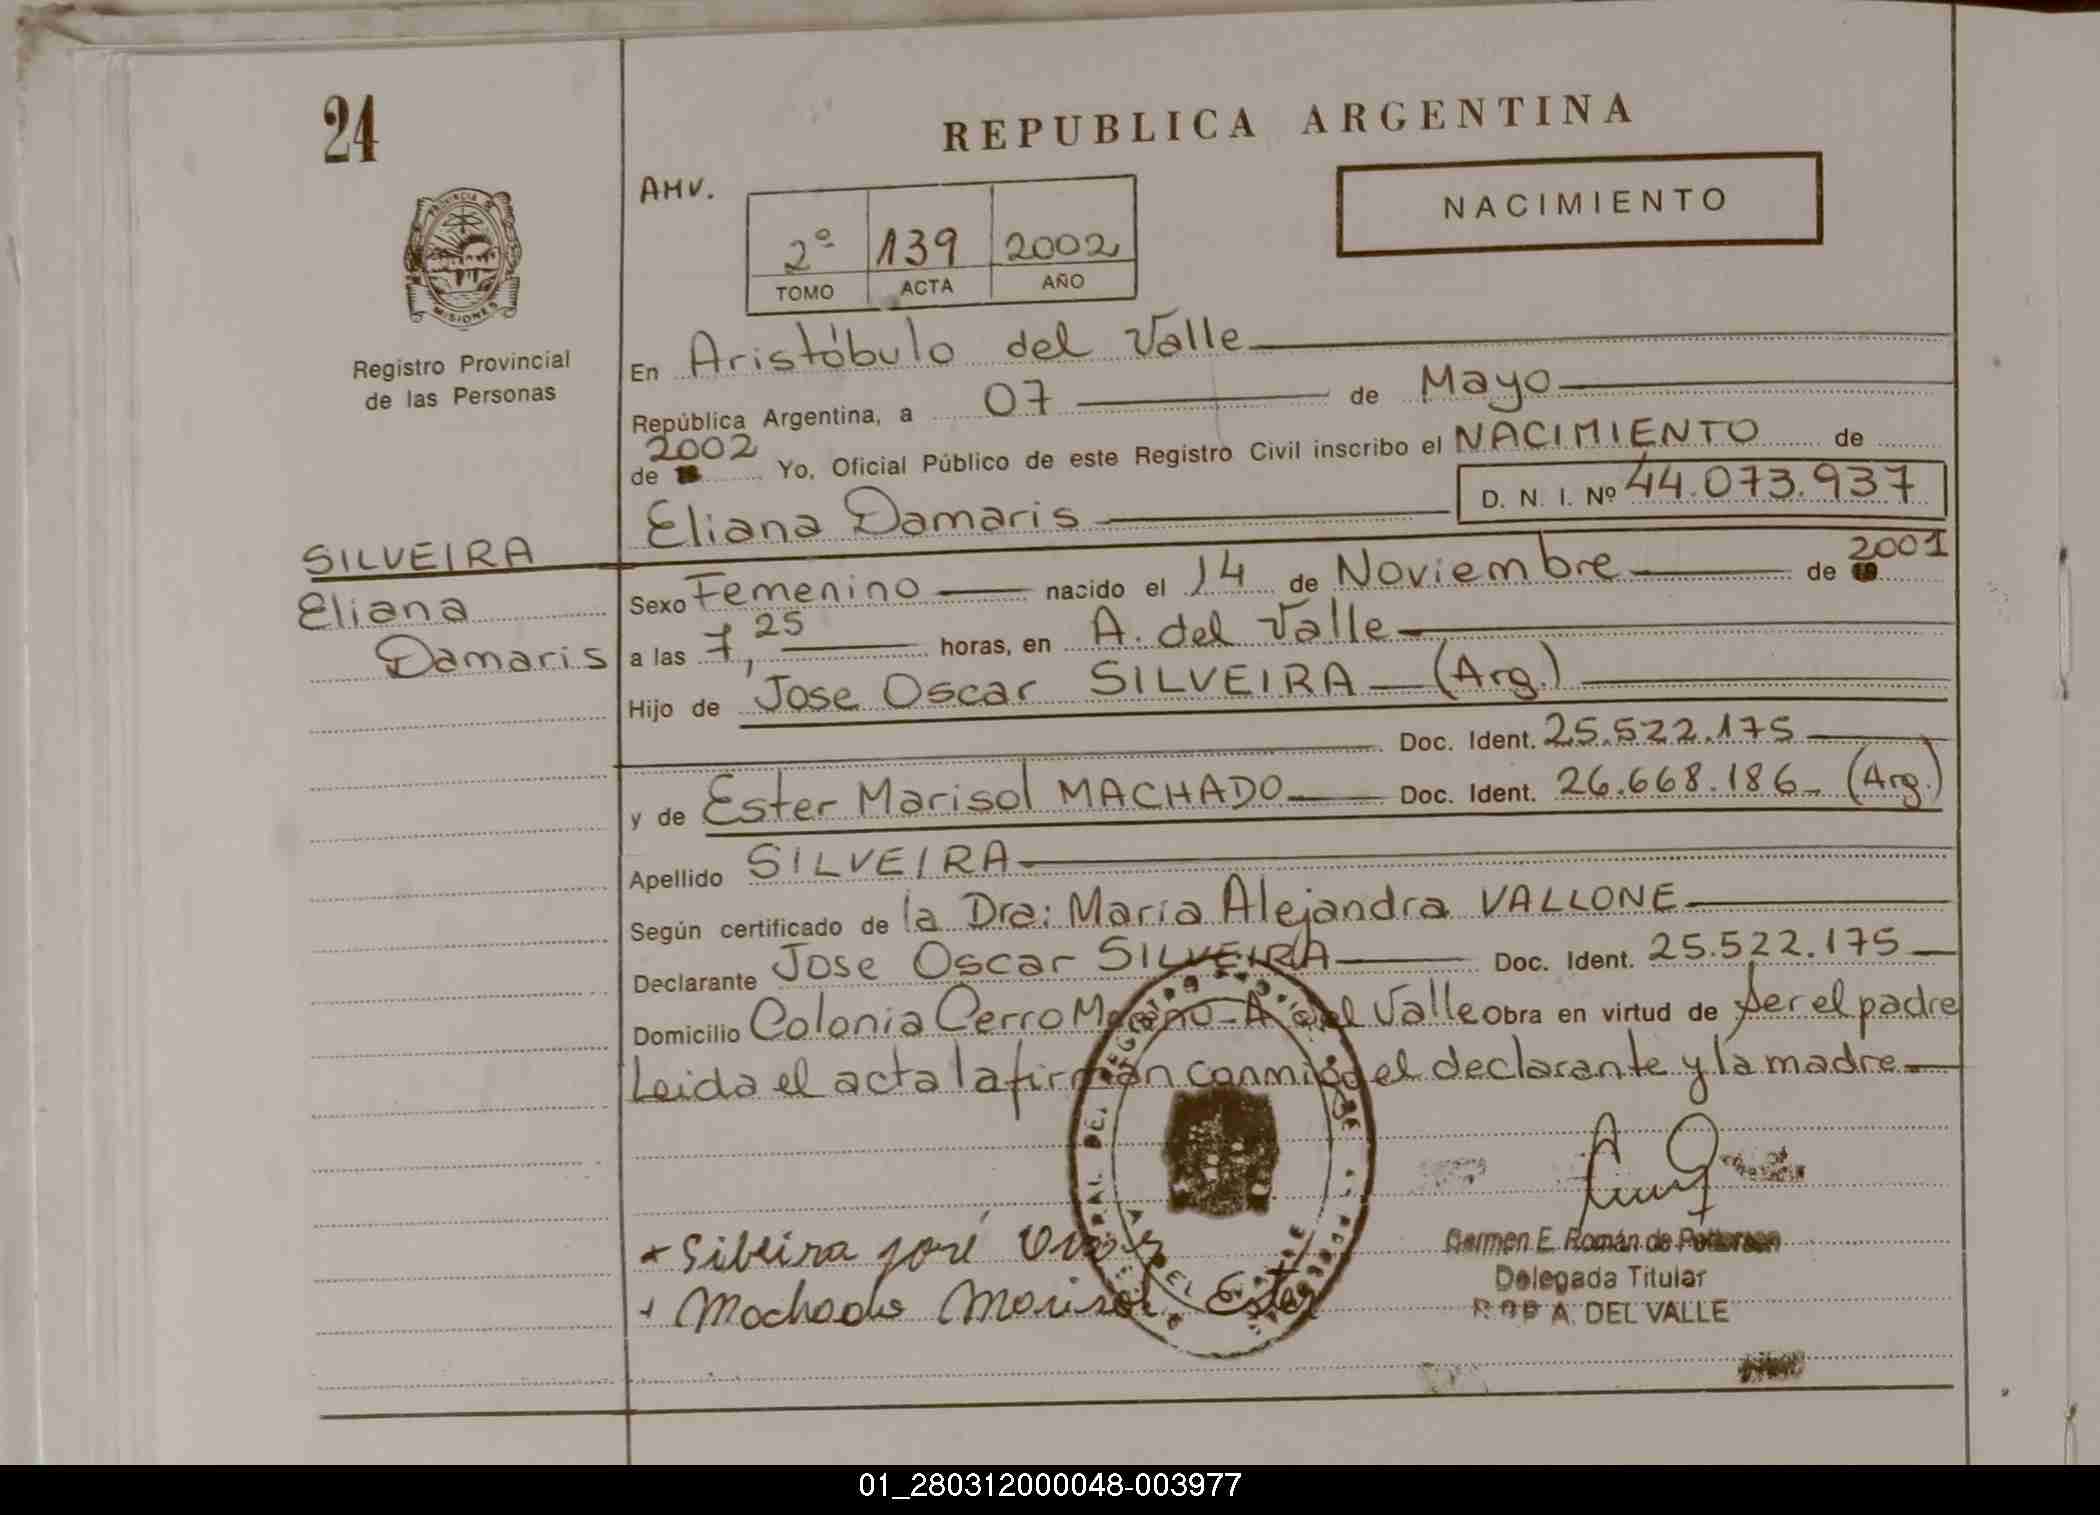 24
REPUBLICA ARGENTINA
AMV.
NACIMIENTO
2º 139 2002
TOMO ACTA AÑO
PROVINCIA DE MISIONES
Registro Provincial
de las Personas
En Aristóbulo del Valle
República Argentina, a 07 de Mayo
de 2002 Yo, Oficial Público de este Registro Civil inscribo el NACIMIENTO de
D. N. I. Nº 44.073.937
Eliana Damaris
SILVEIRA
Eliana
Damaris
Sexo Femenino nacido el 14 de Noviembre de 2001
a las 7,25 horas, en A. del Valle
Hijo de Jose Oscar SILVEIRA (Arg.)
Doc. Ident. 25.522.175
y de Ester Marisol MACHADO Doc. Ident. 26.668.186 (Arg.)
Apellido SILVEIRA
Según certificado de la Dra: María Alejandra VALLONE
Declarante Jose Oscar SILVEIRA Doc. Ident. 25.522.175
Domicilio Colonia Cerro Moreno - A. del Valle Obra en virtud de ser el padre
Leida el acta la firman conmigo el declarante y la madre
Silveira José
Machado Marisol Ester
Carmen E. Román de
Delegada Titular
A. DEL VALLE
01_280312000048-003977